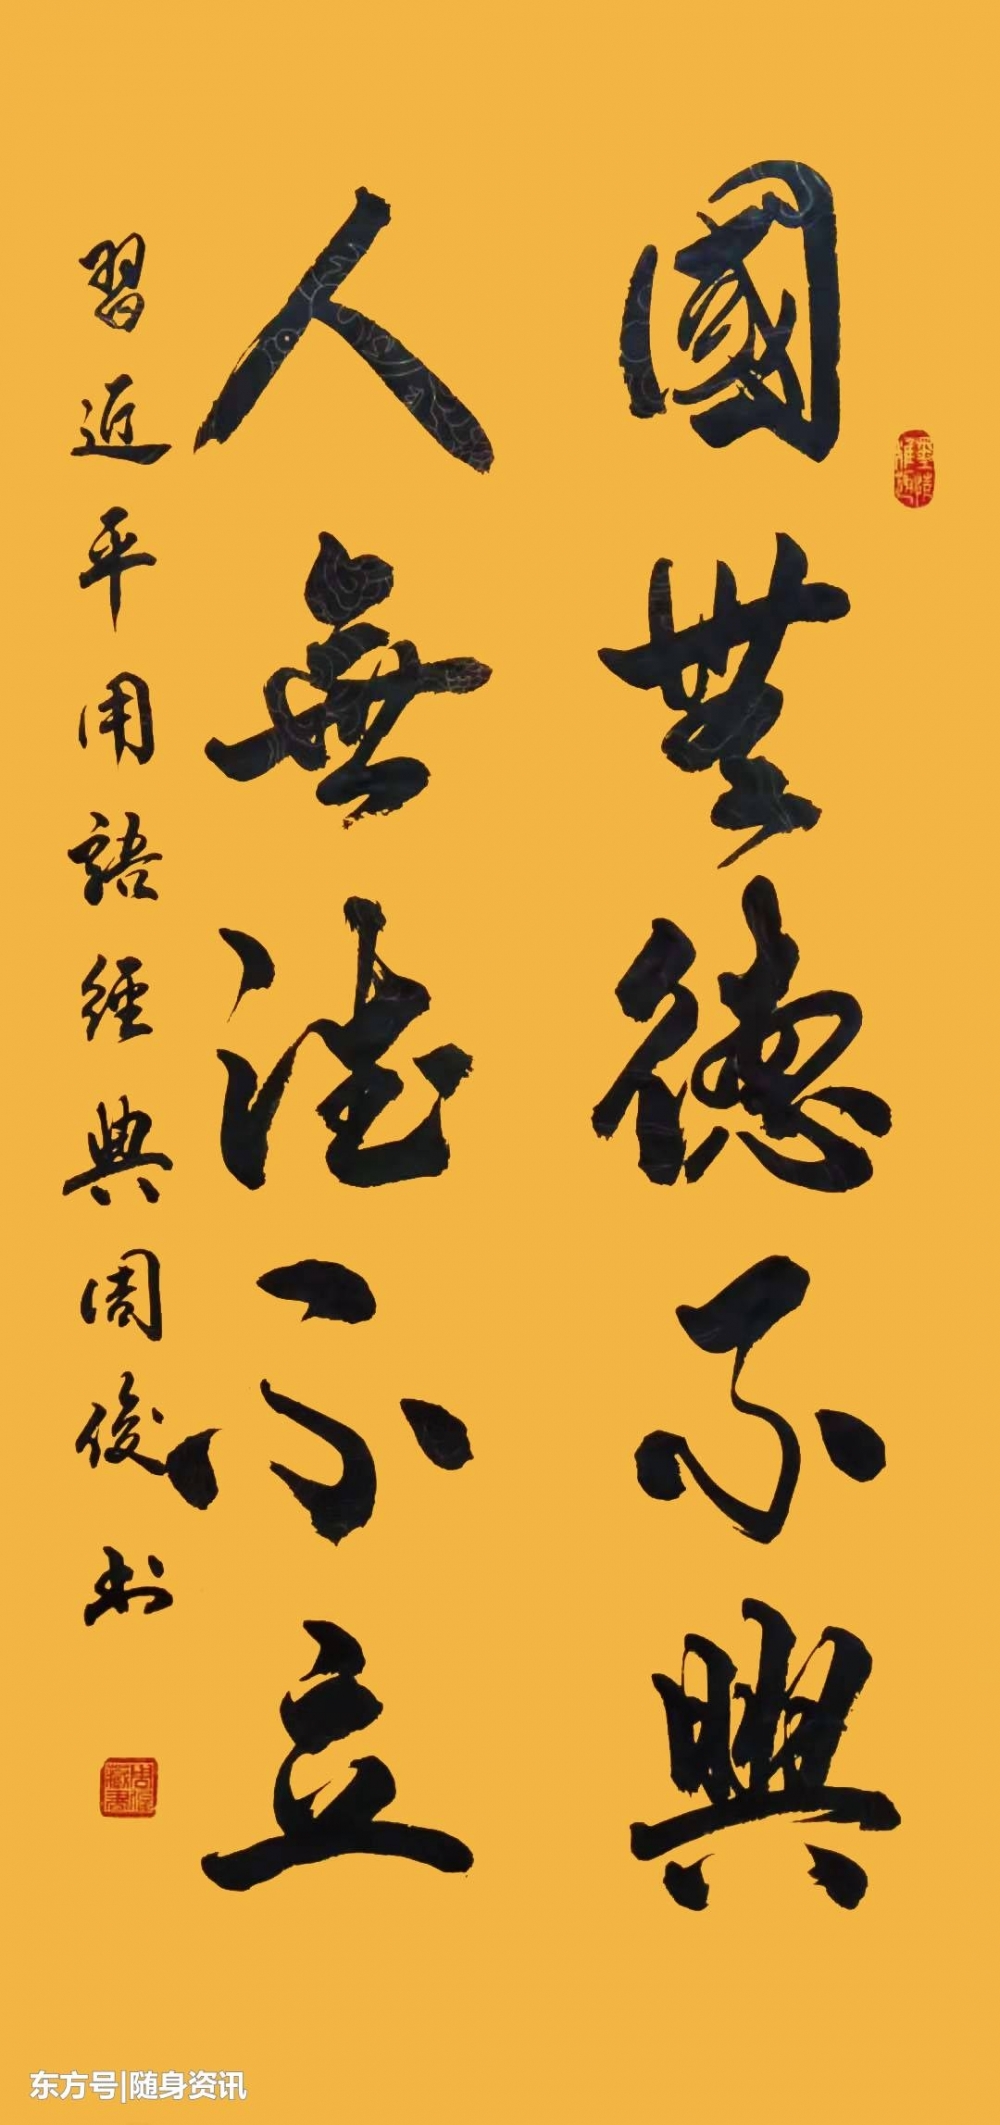 國無德不興
人無德不立
習近平用語經典周俊书
东方号|随身资讯